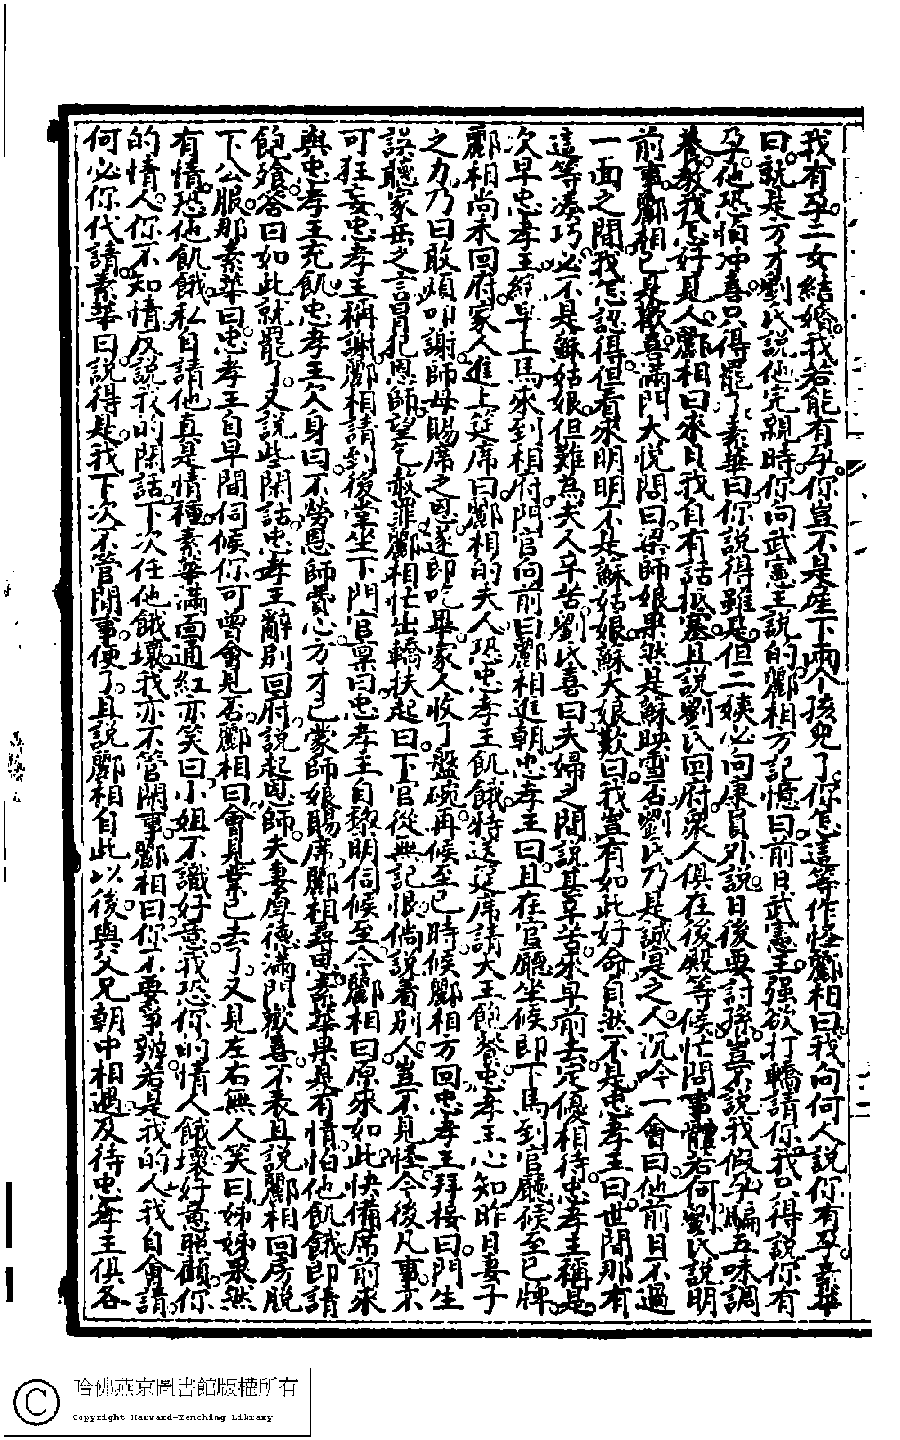 我有孕。二女結婚。我若能有孕。你豈不是產下兩个孩兒了。你怎這等作怪。酈相曰。我向何人說你有孕。素華
曰。就是方才劉氏說他完親時。你向武憲王說的。酈相方記憶曰。前日武憲王強欲打轎請你。我只得說你有
孕。他恐怕冲喜。只得罷了。素華曰。你說得雖是。但二姨必向康員外說。日後要討孫。豈不說我假孕騙五味調
養。教我怎好見人。酈相曰。來日我自有話抵塞。且說劉氏回府。衆人俱在後殿等候。忙問事體若何。劉氏說明
前事。酈相已是歡喜滿門大悅。問曰。梁師娘果然是蘇映雪否。劉氏乃是誠是之人。沉吟一會曰。他前日不過
一面之間。我怎認得。但看來明明不是蘇姑娘。蘇大娘歎曰。我豈有如此好命。自然不是。忠孝王曰。世間那有
這等凑巧。必不是蘇姑娘。但難為夫人辛苦。劉氏喜曰。夫婦之間。說甚辛苦。來早前去定優相待。忠孝王稱是。
次早。忠孝王絕早上馬。來到相府。門官向前曰。酈相進朝。忠孝王曰。且在官廳坐候。即下馬到官廳。候至巳牌
酈相尚未回府。家人進上筵席曰。酈相的夫人恐忠孝王飢餓。特送筵席請大王飽餐。忠孝王心知昨日妻子
之力。乃曰。敢煩叩謝師母賜席之恩。遂即吃畢。家人收了盤碗。再候至巳時候。酈相方回。忠孝王拜接曰。門生
誤聽家岳之言。冒犯恩師。望乞赦罪。酈相忙出轎扶起曰。下官從無記恨。倘說着別人。豈不見怪。今後凡事不
可狂妄。忠孝王稱謝。酈相請到後堂坐下。門官稟曰。忠孝王自黎明伺候至今。酈相曰。原來如此。快備席前來
與忠孝王充飢。忠孝王欠身曰。不勞恩師費心。方才已蒙師娘賜席。酈相尋思。素華果是有情。怕他飢餓。即請
飽飱。答曰。如此就罷了。又說些閑話。忠孝王辭別回府。說起恩師夫妻厚德。滿門歡喜。不表。且說酈相回房脫
下公服。那素華曰。忠孝王自早間伺候。你可曾會見否。酈相曰。會見。業已去了。又見左右無人。笑曰。姊姊果然
有情。恐他飢餓。私自請他。真是情種。素華滿面通紅。亦笑曰。小姐不識好意。我恐你的情人餓壞。好意照顧你
的情人。你不知情。反說我的閑話。下次任他餓壞。我亦不管閑事。酈相曰。你不要爭辦。若是我的人。我自會請。
何必你代請。素華曰。說得是。我下次不管閒事便了。且說酈相自此以後。與父兄朝中相遇。及待忠孝王俱各
哈佛燕京圖書館版權所有
Copyright Harvard-Yenching Library